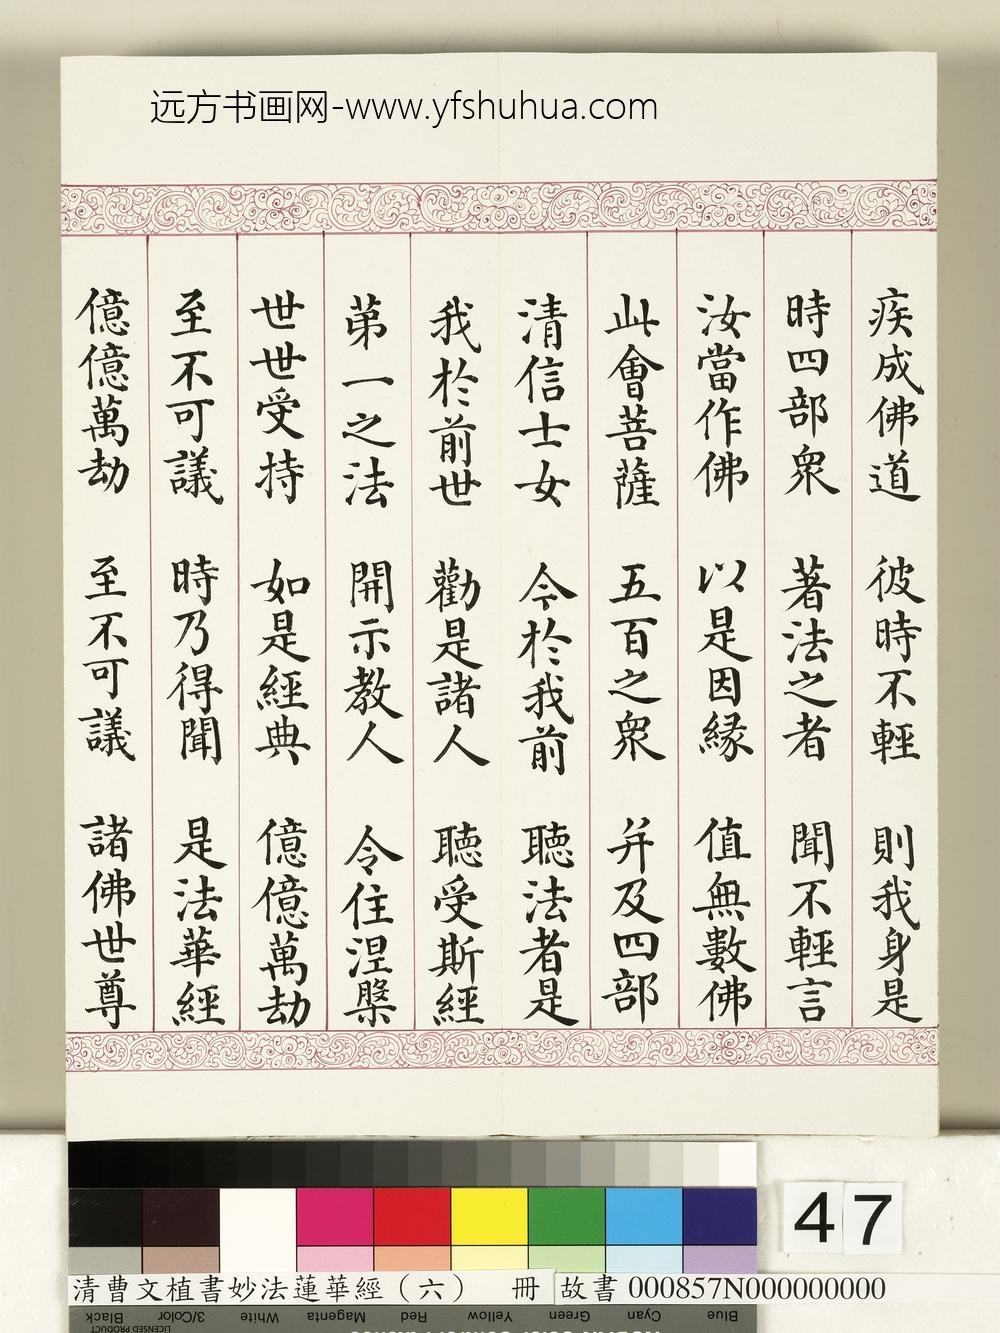 远方书画网-www.yfshuhua.com
疾成佛道 彼時不輕 則我身是
時四部眾 著法之者 聞不輕言
汝當作佛 以是因縁 值無數佛
此會菩薩 五百之眾 并及四部
清信士女 今於我前 聴法者是
我於前世 勸是諸人 聴受斯經
第一之法 開示教人 令住涅槃
世世受持 如是經典 億億萬劫
至不可議 時乃得聞 是法華經
億億萬劫 至不可議 諸佛世尊
47
清曹文植書妙法蓮華經（六） 冊 故書 000857N000000000
Black 3/Color White Magenta Red Yellow Green Cyan Blue
LICENSED PRODUCT